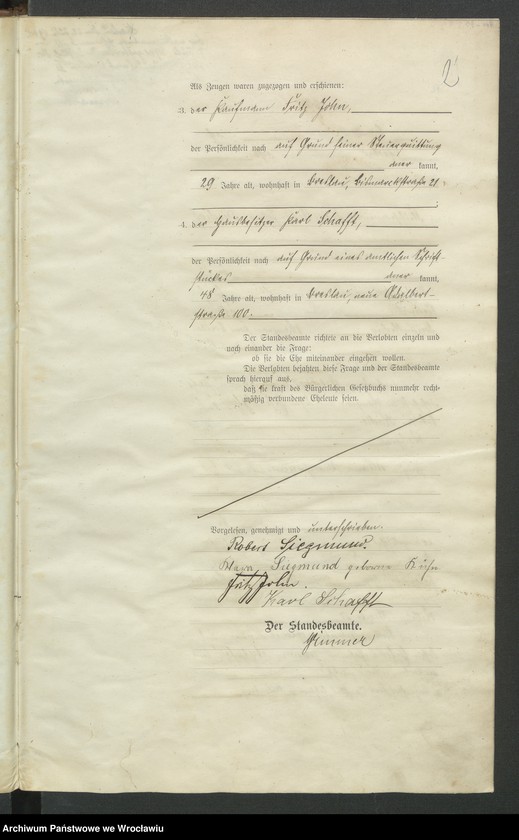 2
Als Zeugen waren zugezogen und erschienen:
3. der Kaufmann Fritz John,
der Persönlichkeit nach auf Grund seiner Steuerquittung
aner kannt,
29 Jahre alt, wohnhaft in Breslau, Bismarckstraße 21.
4. der Hausbesitzer Karl Schafft,
der Persönlichkeit nach auf Grund eines amtlichen Schrift-
stückes aner kannt,
48 Jahre alt, wohnhaft in Breslau, neue Adalbert-
straße 100.
Der Standesbeamte richtete an die Verlobten einzeln und
nach einander die Frage:
ob sie die Ehe miteinander eingehen wollen.
Die Verlobten bejahten diese Frage und der Standesbeamte
sprach hierauf aus,
daß sie kraft des Bürgerlichen Gesetzbuchs nunmehr recht-
mäßig verbundene Eheleute seien.
Vorgelesen, genehmigt und unterschrieben.
Robert Siegmund.
Siegmund geborene Kühn
Fritz John.
Karl Schafft
Der Standesbeamte.
Archiwum Państwowe we Wrocławiu